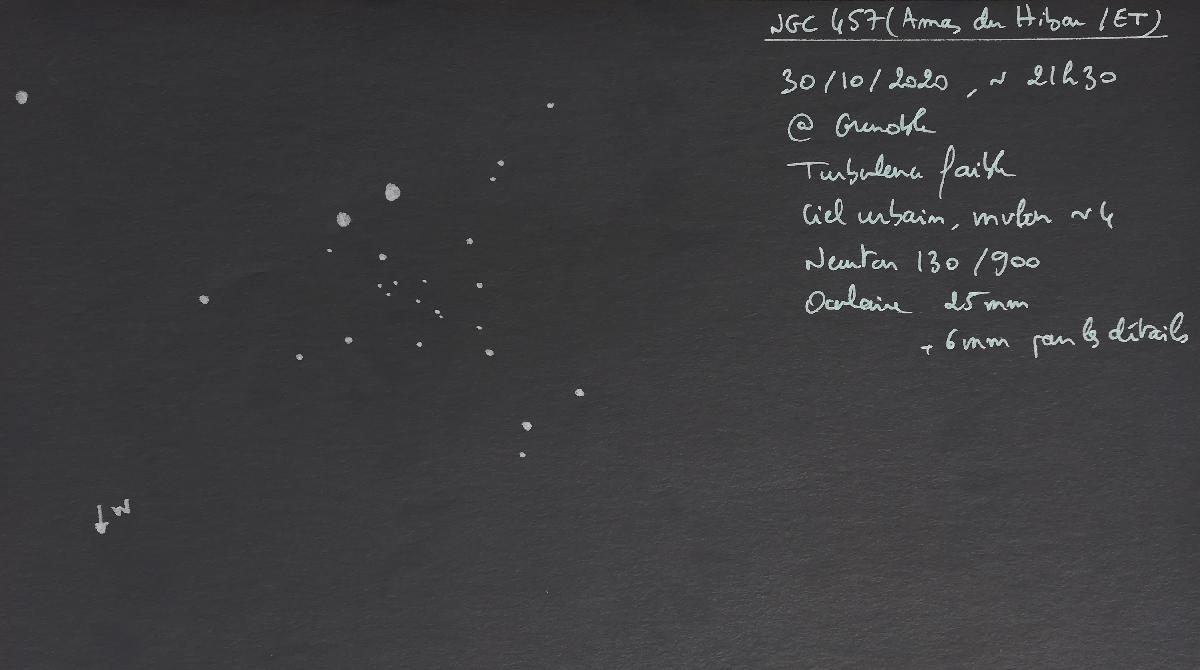 NGC 457 (Amas du Hibou / ET)
30/10/2020, ~ 21h30
@ Grenoble
Turbulence faible
Ciel urbain, mvlon ~ 4
Newton 130/900
Oculaire 25mm
+ 6mm pour les détails
N